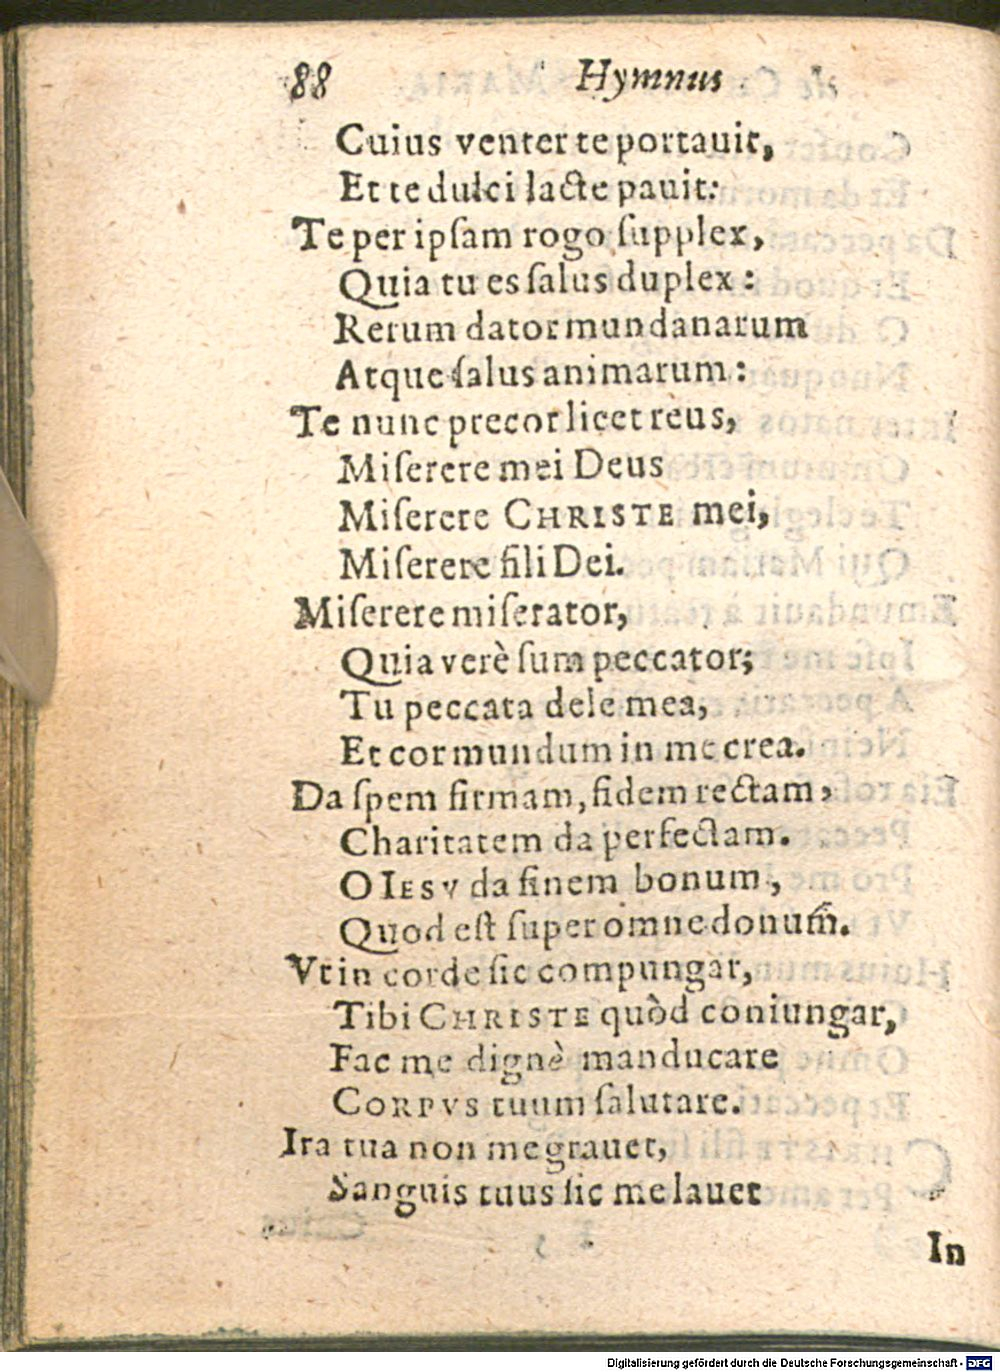 88 Hymnus
Cuius venter te portauit,
Et te dulci lacte pauit:
Te per ipſam rogo ſupplex,
Quia tu es ſalus duplex:
Rerum dator mundanarum
Atque ſalus animarum:
Te nunc precor licet reus,
Miſerere mei Deus
Miſerere CHRISTE mei,
Miſerere fili Dei.
Miſerere miſerator,
Quia verè ſum peccator;
Tu peccata dele mea,
Et cor mundum in me crea.
Da ſpem firmam, fidem rectam,
Charitatem da perfectam.
O IESV da finem bonum,
Quod eſt ſuper omne donum̃.
Vt in corde ſic compungar,
Tibi CHRISTE quòd coniungar,
Fac me dignè manducare
CORPVS tuum ſalutare.
Ira tua non me grauet,
Sanguis tuus ſic me lauet
In
Digitalisierung gefördert durch die Deutsche Forschungsgemeinschaft - DFG